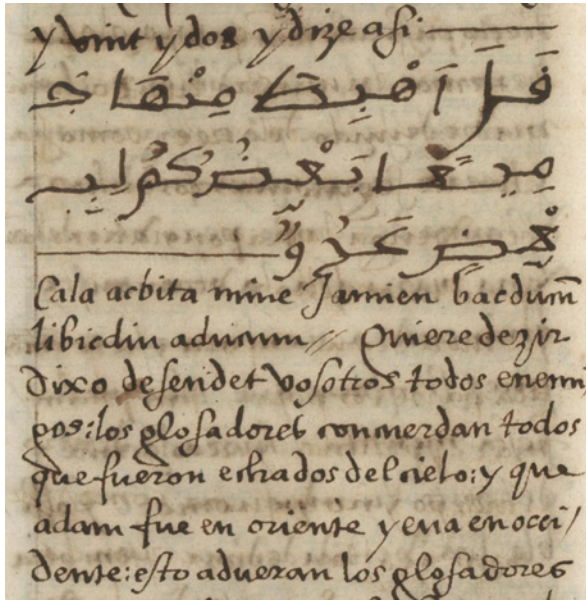 y vint y dos y dize asi:
قَالَ اَهْبِطَا مِنْهَا جَ
مِيعًا بَعْضُكُمْ لِبَ
عْضٍ عَدُوٌّ
Cala acbita mine Jamien bacducum
libicdin aduunu // Quiere dezir
dixo desendet vosotros todos enemi
gos: los glosadores concuerdan todos
que fueron echados del cielo: y que
adam fue en oriente y eva en occi/
dente: esto adueran los glosadores